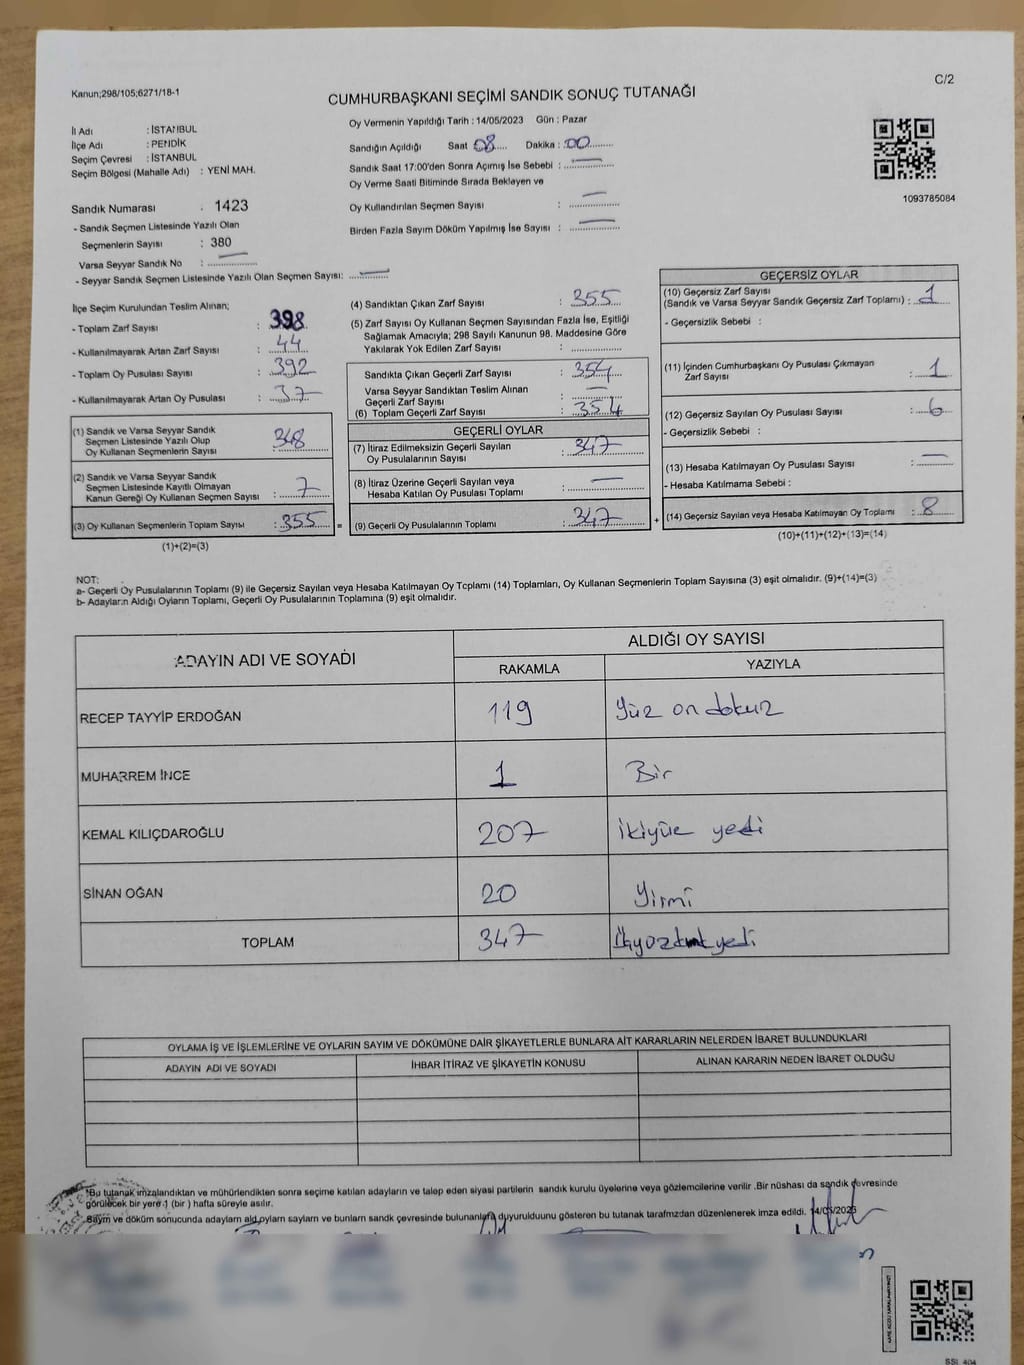 Kanun;298/105;6271/18-1
C/2
CUMHURBAŞKANI SEÇİMİ SANDIK SONUÇ TUTANAĞI
İl Adı : İSTANBUL
İlçe Adı : PENDİK
Seçim Çevresi : İSTANBUL
Seçim Bölgesi (Mahalle Adı) : YENİ MAH.
Sandık Numarası : 1423
- Sandık Seçmen Listesinde Yazılı Olan
Seçmenlerin Sayısı : 380
Varsa Seyyar Sandık No :
- Seyyar Sandık Seçmen Listesinde Yazılı Olan Seçmen Sayısı: —
Oy Vermenin Yapıldığı Tarih : 14/05/2023 Gün : Pazar
Sandığın Açıldığı Saat 08 Dakika : 00
Sandık Saat 17:00'den Sonra Açımış İse Sebebi : —
Oy Verme Saati Bitiminde Sırada Bekleyen ve
Oy Kullandırılan Seçmen Sayısı : —
Birden Fazla Sayım Döküm Yapılmış İse Sayısı : —
1093785084
İlçe Seçim Kurulundan Teslim Alınan;
- Toplam Zarf Sayısı : 398
- Kullanılmayarak Artan Zarf Sayısı : 44
- Toplam Oy Pusulası Sayısı : 392
- Kullanılmayarak Artan Oy Pusulası : 37
(1) Sandık ve Varsa Seyyar Sandık
Seçmen Listesinde Yazılı Olup
Oy Kullanan Seçmenlerin Sayısı 348
(2) Sandık ve Varsa Seyyar Sandık
Seçmen Listesinde Kayıtlı Olmayan
Kanun Gereği Oy Kullanan Seçmen Sayısı : 7
(3) Oy Kullanan Seçmenlerin Toplam Sayısı : 355 =
(1)+(2)=(3)
(4) Sandıktan Çıkan Zarf Sayısı : 355
(5) Zarf Sayısı Oy Kullanan Seçmen Sayısından Fazla İse, Eşitliği
Sağlamak Amacıyla; 298 Sayılı Kanunun 98. Maddesine Göre
Yakılarak Yok Edilen Zarf Sayısı :
Sandıkta Çıkan Geçerli Zarf Sayısı : 354
Varsa Seyyar Sandıktan Teslim Alınan
Geçerli Zarf Sayısı : —
(6) Toplam Geçerli Zarf Sayısı : 354
GEÇERLİ OYLAR
(7) İtiraz Edilmeksizin Geçerli Sayılan
Oy Pusulalarının Sayısı : 347
(8) İtiraz Üzerine Geçerli Sayılan veya
Hesaba Katılan Oy Pusulası Toplamı : —
(9) Geçerli Oy Pusulalarının Toplamı : 347 +
GEÇERSİZ OYLAR
(10) Geçersiz Zarf Sayısı
(Sandık ve Varsa Seyyar Sandık Geçersiz Zarf Toplamı) : 1
- Geçersizlik Sebebi :
(11) İçinden Cumhurbaşkanı Oy Pusulası Çıkmayan
Zarf Sayısı : 1
(12) Geçersiz Sayılan Oy Pusulası Sayısı : 6
- Geçersizlik Sebebi :
(13) Hesaba Katılmayan Oy Pusulası Sayısı : —
- Hesaba Katılmama Sebebi :
(14) Geçersiz Sayılan veya Hesaba Katılmayan Oy Toplamı : 8
(10)+(11)+(12)+(13)=(14)
NOT:
a- Geçerli Oy Pusulalarının Toplamı (9) ile Geçersiz Sayılan veya Hesaba Katılmayan Oy Toplamı (14) Toplamları, Oy Kullanan Seçmenlerin Toplam Sayısına (3) eşit olmalıdır. (9)+(14)=(3)
b- Adayların Aldığı Oyların Toplamı, Geçerli Oy Pusulalarının Toplamına (9) eşit olmalıdır.
ADAYIN ADI VE SOYADI
ALDIĞI OY SAYISI
RAKAMLA YAZIYLA
RECEP TAYYİP ERDOĞAN 119 Yüz on dokuz
MUHARREM İNCE 1 Bir
KEMAL KILIÇDAROĞLU 207 ikiyüz yedi
SİNAN OĞAN 20 Yirmi
TOPLAM 347
OYLAMA İŞ VE İŞLEMLERİNE VE OYLARIN SAYIM VE DÖKÜMÜNE DAİR ŞİKAYETLERLE BUNLARA AİT KARARLARIN NELERDEN İBARET BULUNDUKLARI
ADAYIN ADI VE SOYADI İHBAR İTİRAZ VE ŞİKAYETİN KONUSU ALINAN KARARIN NEDEN İBARET OLDUĞU
*Bu tutanak imzalandıktan ve mühürlendikten sonra seçime katılan adayların ve talep eden siyasi partilerin sandık kurulu üyelerine veya gözlemcilerine verilir .Bir nüshası da sandık çevresinde
görülecek bir yere 1 (bir ) hafta süreyle asılır.
Sayım ve döküm sonucunda adayların ald oyların sayların ve bunların sandk çevresinde bulunanlara duyurulduunu gösteren bu tutanak tarafmzdan düzenlenerek imza edildi. 14/05/2023